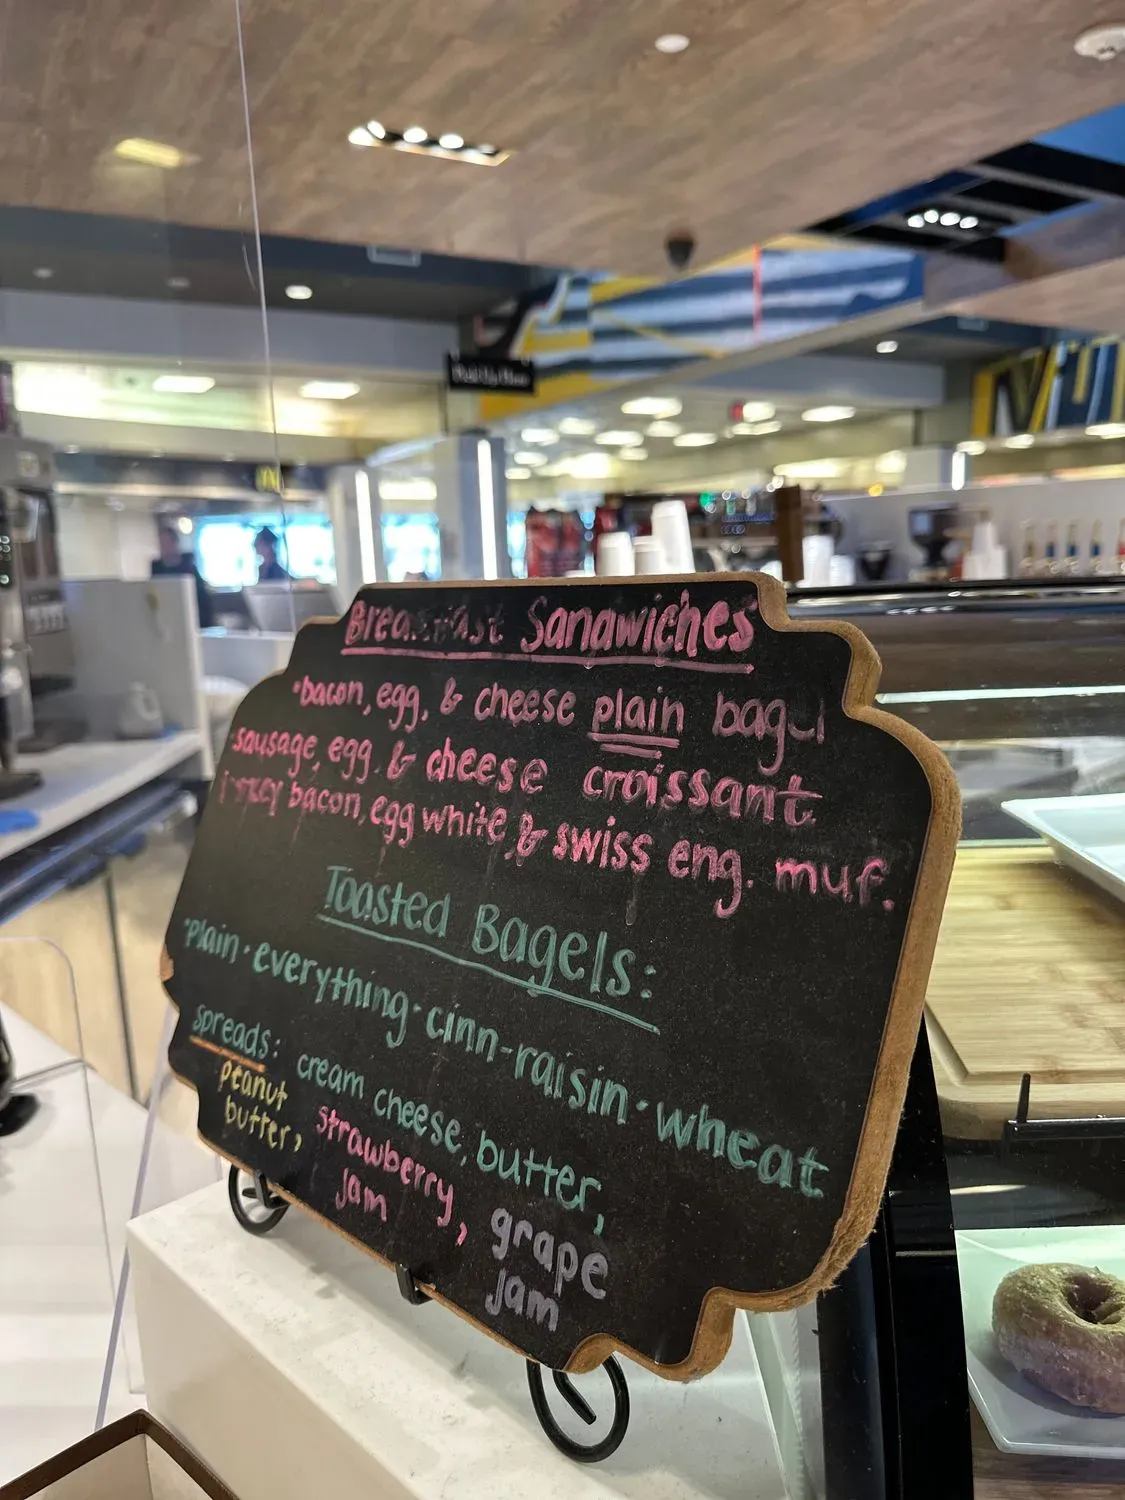 Breakfast Sandwiches
•bacon, egg, & cheese plain bagel
•sausage, egg. & cheese croissant
turkey bacon, egg white & swiss eng. muf.
Toasted Bagels:
•plain • everything • cinn-raisin • wheat
spreads: cream cheese, butter,
peanut butter, strawberry jam, grape jam
Pick Up Here